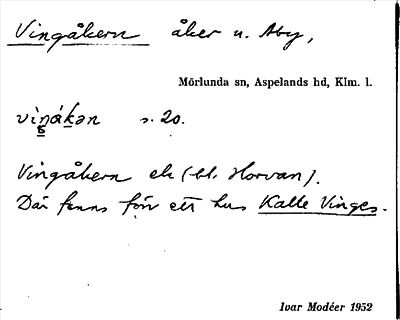 Vingåkern åker u. Åby,
Mörlunda sn, Aspelands hd, Klm. l.
s. 20.
Vingåkern ek (bl. Horvan).
Där fanns förr ett hus Kalle Vinges.
Ivar Modéer 1952